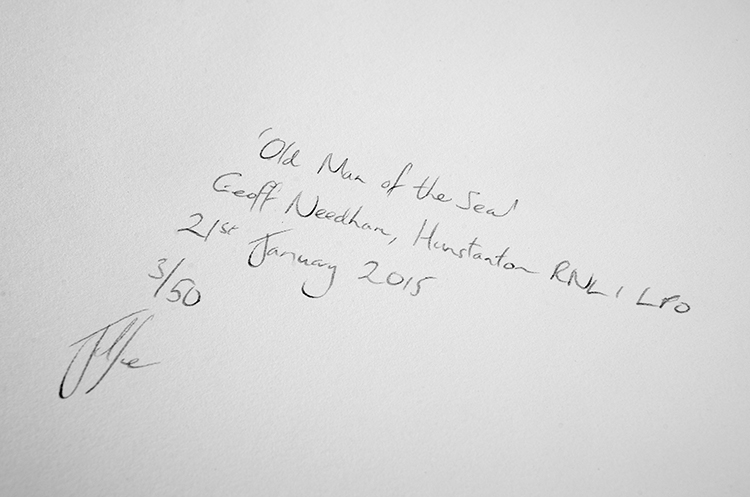 'Old Man of the Sea'
Geoff Needham, Hunstanton RNLI LPO
21st January 2015
3/50